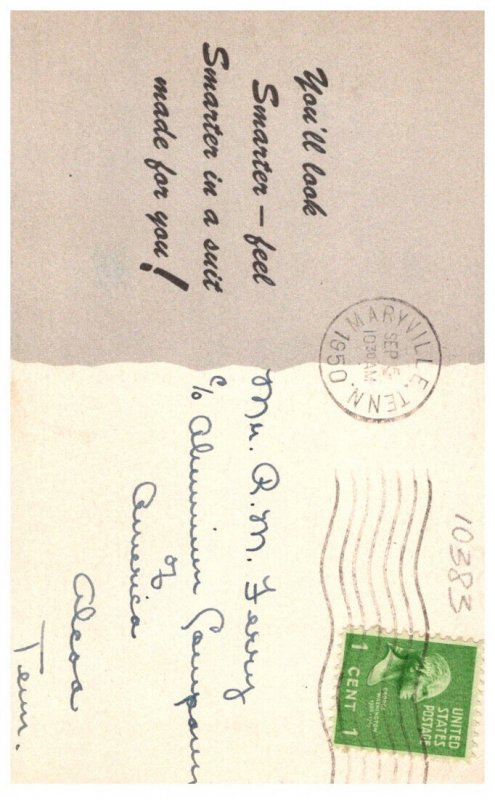 You'll look
Smarter – feel
Smarter in a suit
made for you!
MARYVILLE, TENN.
SEP 5
10 30 AM
1950
10383
UNITED
STATES
POSTAGE
1 CENT 1
Mr. R. M. Ferry
c/o Aluminum Company
of
America
Alcoa
Tenn.